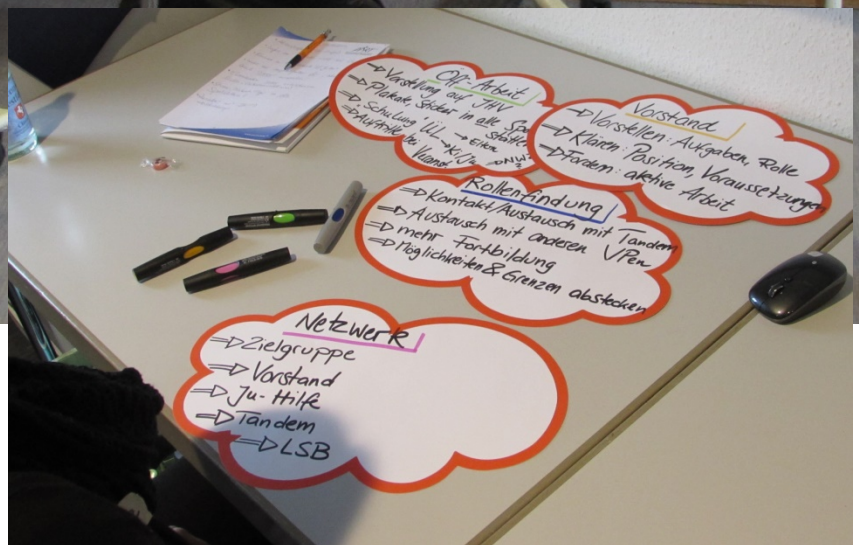 Öff-Arbeit
⇒ Vorstellung auf JHV
⇒ Plakate, Sticker in alle Spo
stätten
⇒ Schulung ÜL → Eltern
→ Ki/Ju
⇒ Auftritte bei
Veranst.
Vorstand
⇒ Vorstellen: Aufgaben, Rolle
⇒ Klären: Position, Voraussetzungen
⇒ Fordern: aktive Arbeit
Rollenfindung
⇒ Kontakt/Austausch mit Tandem
⇒ Austausch mit anderen VPen
⇒ mehr Fortbildung
⇒ Möglichkeiten & Grenzen abstecken
Netzwerk
⇒ Zielgruppe
⇒ Vorstand
⇒ Ju-Hilfe
⇒ Tandem
⇒ LSB